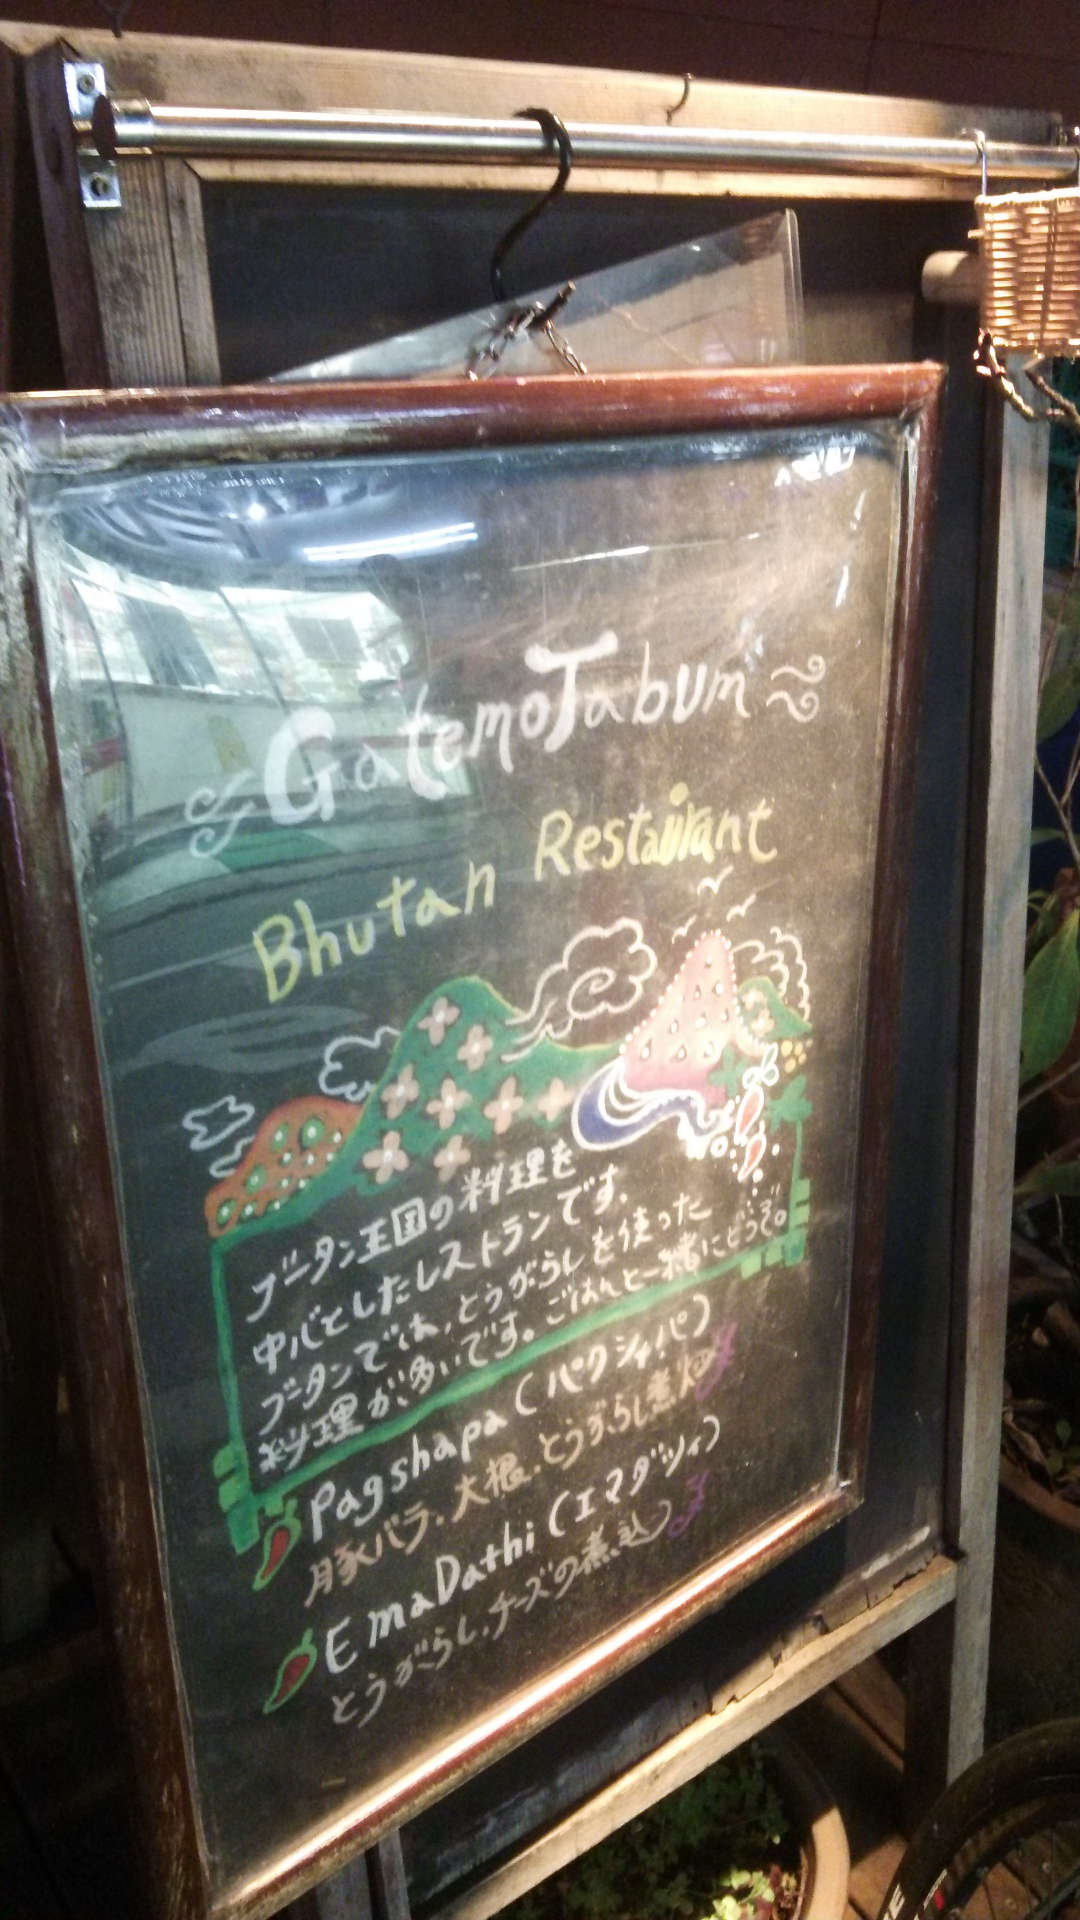 GatemoTabum
Bhutan Restaurant
ブータン王国の料理を
中心としたレストランです.
ブータンでは、とうがらしを使った
料理が多いです。ごはんと一緒にどうぞ。
Pagshapa (パクシャパ)
豚バラ、大根、とうがらし煮込
EmaDathi (エマダツィ)
とうがらし、チーズの煮込